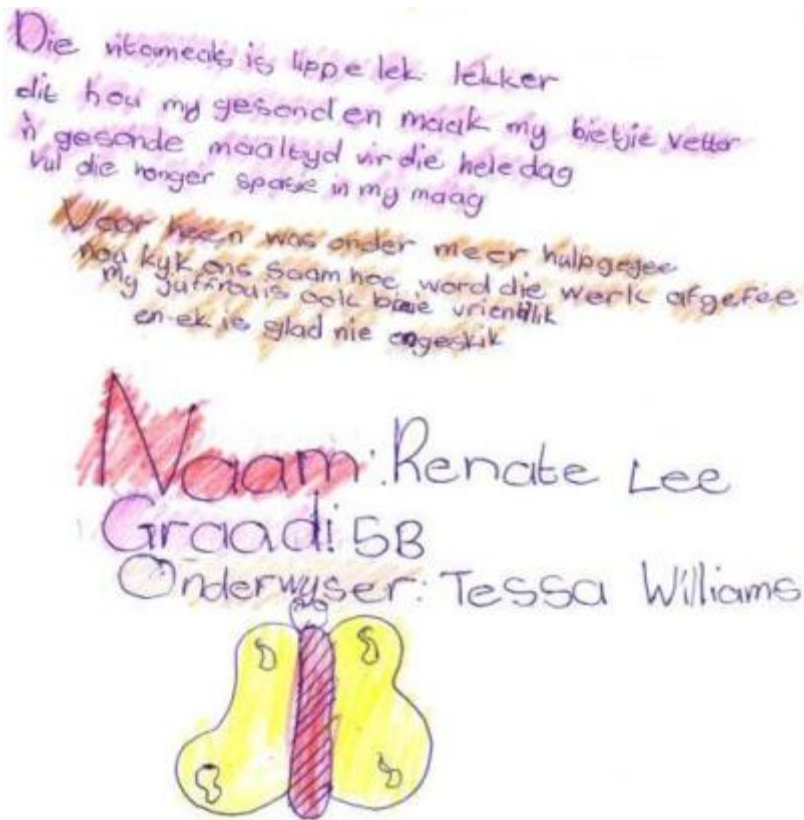 Die vitameals is lippe lek lekker
dit hou my gesond en maak my bietjie vetter
'n gesonde maaltyd vir die hele dag
vul die honger spasie in my maag
Voor heen was onder meer hulp gegee
nou kyk ons saam hoe word die werk afgefee
my juffrou is ook baie vriendlik
en ek is glad nie ongeskik
Naam: Renate Lee
Graad: 5B
Onderwyser: Tessa Williams